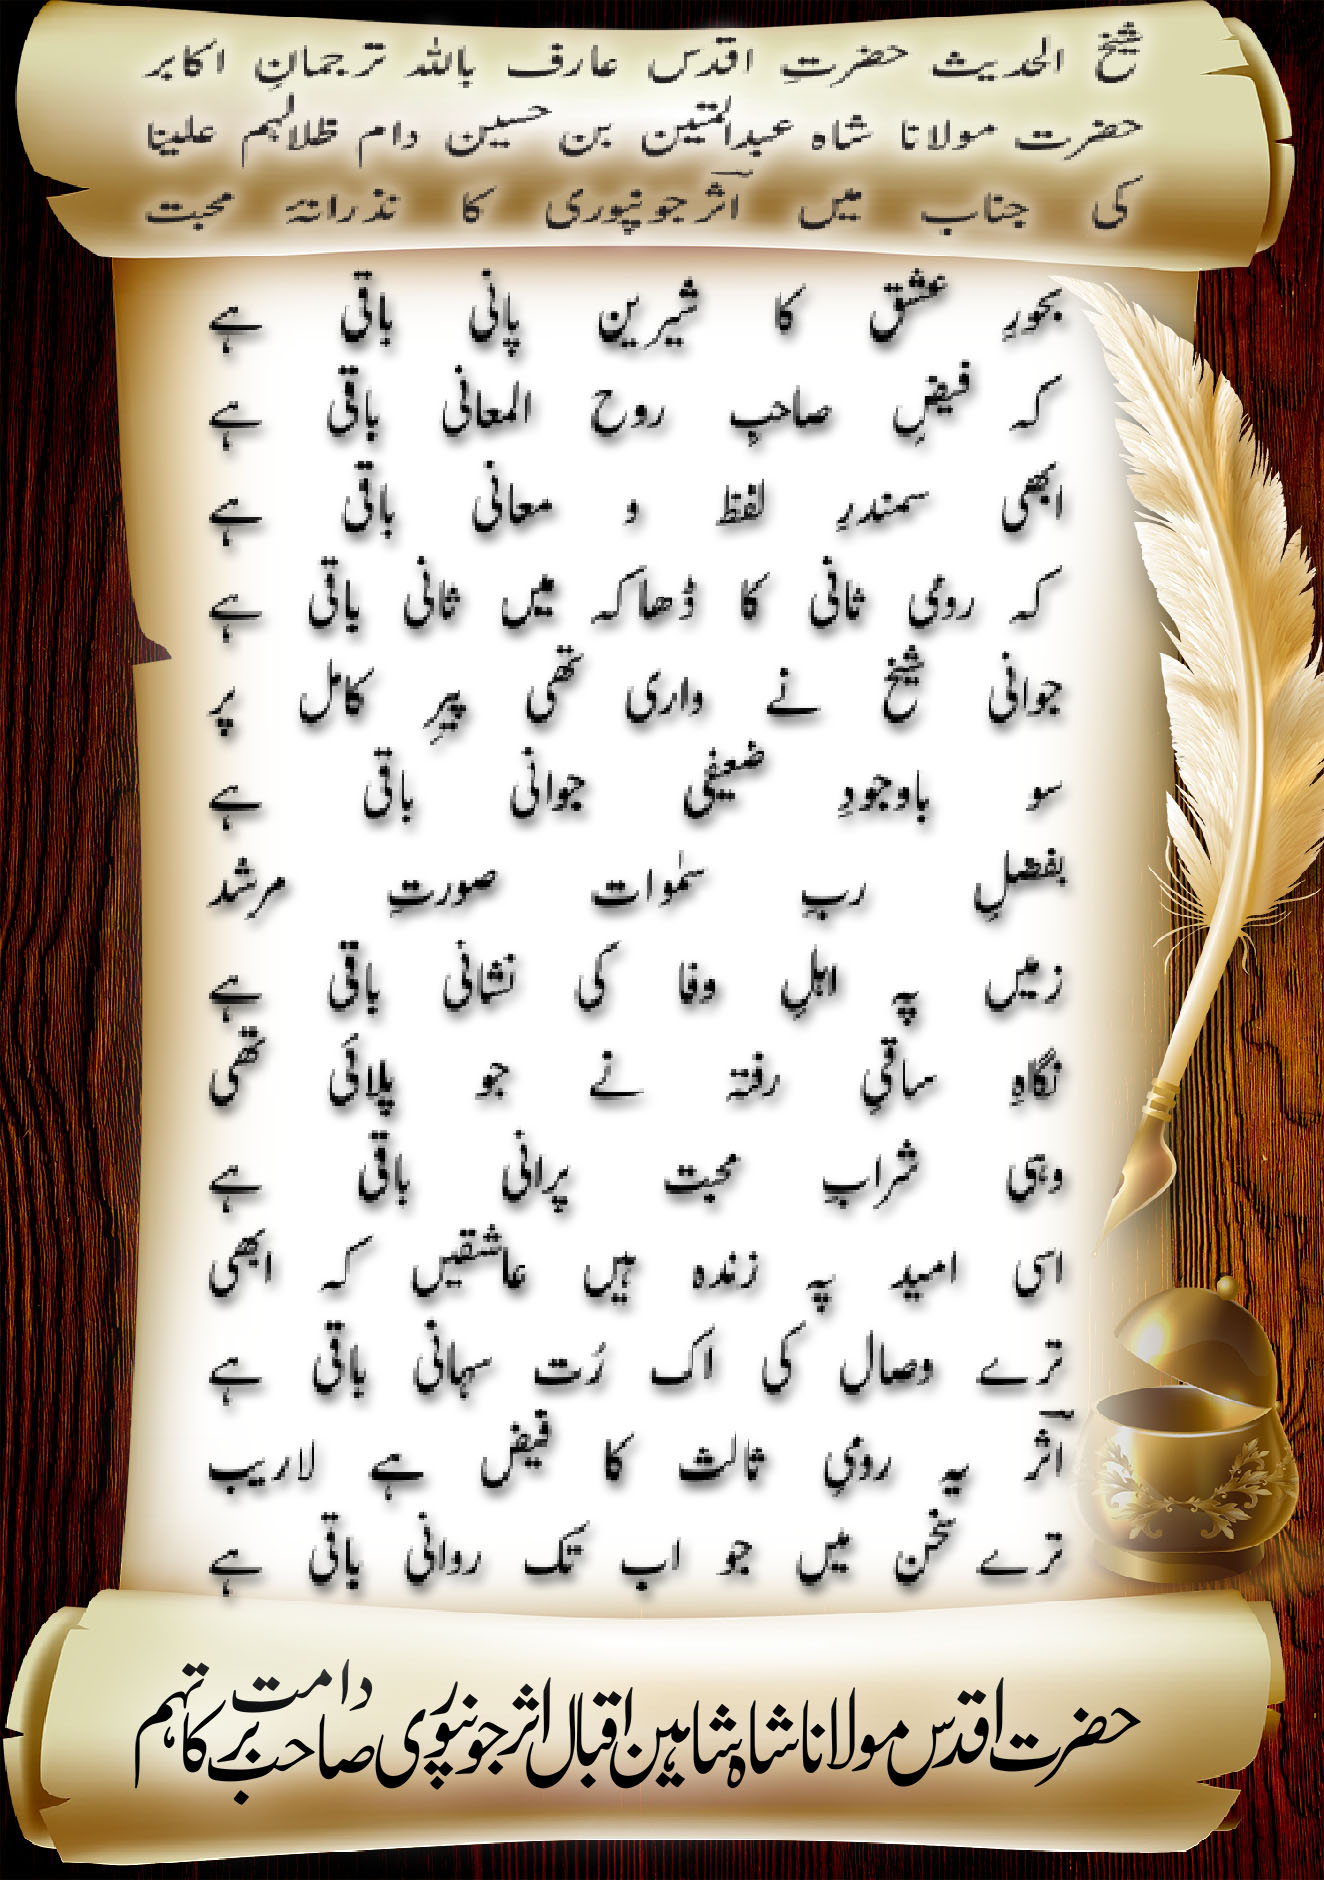 شیخ الحدیث حضرتِ اقدس عارف باللہ ترجمانِ اکابر
حضرت مولانا شاہ عبدالمتین بن حسین دام ظلالہم علینا
کی جناب میں اثرؔ جونپوری کا نذرانۂ محبت
بحورِ عشق کا شیریں پانی باقی ہے
کہ فیضِ صاحبِ روح المعانی باقی ہے
ابھی سمندرِ لفظ و معانی باقی ہے
کہ رومیِ ثانی کا ڈھاکہ میں ثانی باقی ہے
جوانی شیخ نے واری تھی پیرِ کامل پر
سو باوجودِ ضعیفی جوانی باقی ہے
بفضلِ ربِ سمٰوات صورتِ مرشد
زمیں پہ اہلِ وفا کی نشانی باقی ہے
نگاہِ ساقیِ رفتہ نے جو پلائی تھی
وہی شرابِ محبت پرانی باقی ہے
اسی امید پہ زندہ ہیں عاشقیں کہ ابھی
ترے وصال کی اَک رُت سہانی باقی ہے
اثرؔ یہ رومیِ ثالث کا فیض ہے لاریب
ترے سخن میں جو اب تک روانی باقی ہے
حضرت اقدس مولانا شاہ شاہین اقبال اثر جونپوری صاحب دامت برکاتہم